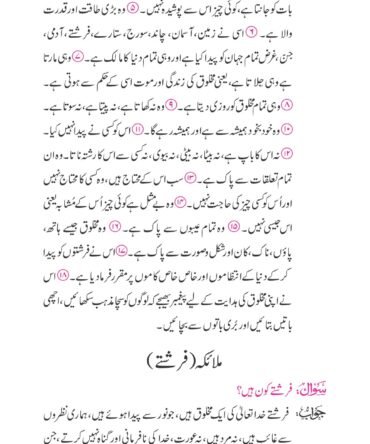 بات کو جانتا ہے، کوئی چیز اس سے پوشیدہ نہیں۔ ⑤ وہ بڑی طاقت اور قدرت
والا ہے۔ ⑥ اسی نے زمین، آسمان، چاند، سورج، ستارے، فرشتے، آدمی،
جن، غرض تمام جہان کو پیدا کیا ہے اور وہی تمام دنیا کا مالک ہے۔ ⑦ وہی مارتا
ہے وہی جِلاتا ہے، یعنی مخلوق کی زندگی اور موت اسی کے حکم سے ہوتی ہے۔
⑧ وہی تمام مخلوق کو روزی دیتا ہے۔ ⑨ وہ نہ کھاتا ہے، نہ پیتا ہے، نہ سوتا ہے۔
⑩ وہ خود بخود ہمیشہ سے ہے اور ہمیشہ رہے گا۔ ⑪ اس کو کسی نے پیدا نہیں کیا۔
⑫ نہ اس کا باپ ہے، نہ بیٹا، نہ بیٹی، نہ بیوی، نہ کسی سے اس کا رشتہ ناتا۔ وہ ان
تمام تعلقات سے پاک ہے۔ ⑬ سب اس کے محتاج ہیں، وہ کسی کا محتاج نہیں
اور اُس کو کسی چیز کی حاجت نہیں۔ ⑭ وہ بے مثل ہے کوئی چیز اُس کے مُشابہ یعنی
اس جیسی نہیں۔ ⑮ وہ تمام عیبوں سے پاک ہے۔ ⑯ وہ مخلوق جیسے ہاتھ،
پاؤں، ناک، کان اور شکل و صورت سے پاک ہے۔ ⑰ اس نے فرشتوں کو پیدا
کر کے دنیا کے انتظاموں اور خاص خاص کاموں پر مقرر فرما دیا ہے۔ ⑱ اس
نے اپنی مخلوق کی ہدایت کے لیے پیغمبر بھیجے کہ لوگوں کو سچا مذہب سکھائیں، اچھی
باتیں بتائیں اور بُری باتوں سے بچائیں۔
ملائکہ (فرشتے)
سوال: فرشتے کون ہیں؟
جواب: فرشتے خدا تعالیٰ کی ایک مخلوق ہیں، جو نور سے پیدا ہوئے ہیں، ہماری نظروں
سے غائب ہیں، نہ مرد ہیں، نہ عورت، خدا کی نافرمانی اور گناہ نہیں کرتے، جن